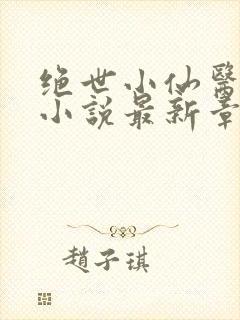 绝世小仙醫
小説最新章
趙子琪